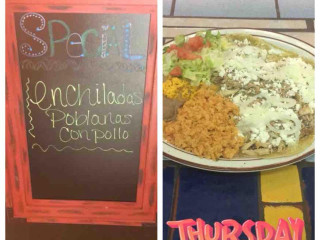 SPeciAL
Enchiladas
Poblanas
Con pollo
THURSDAY